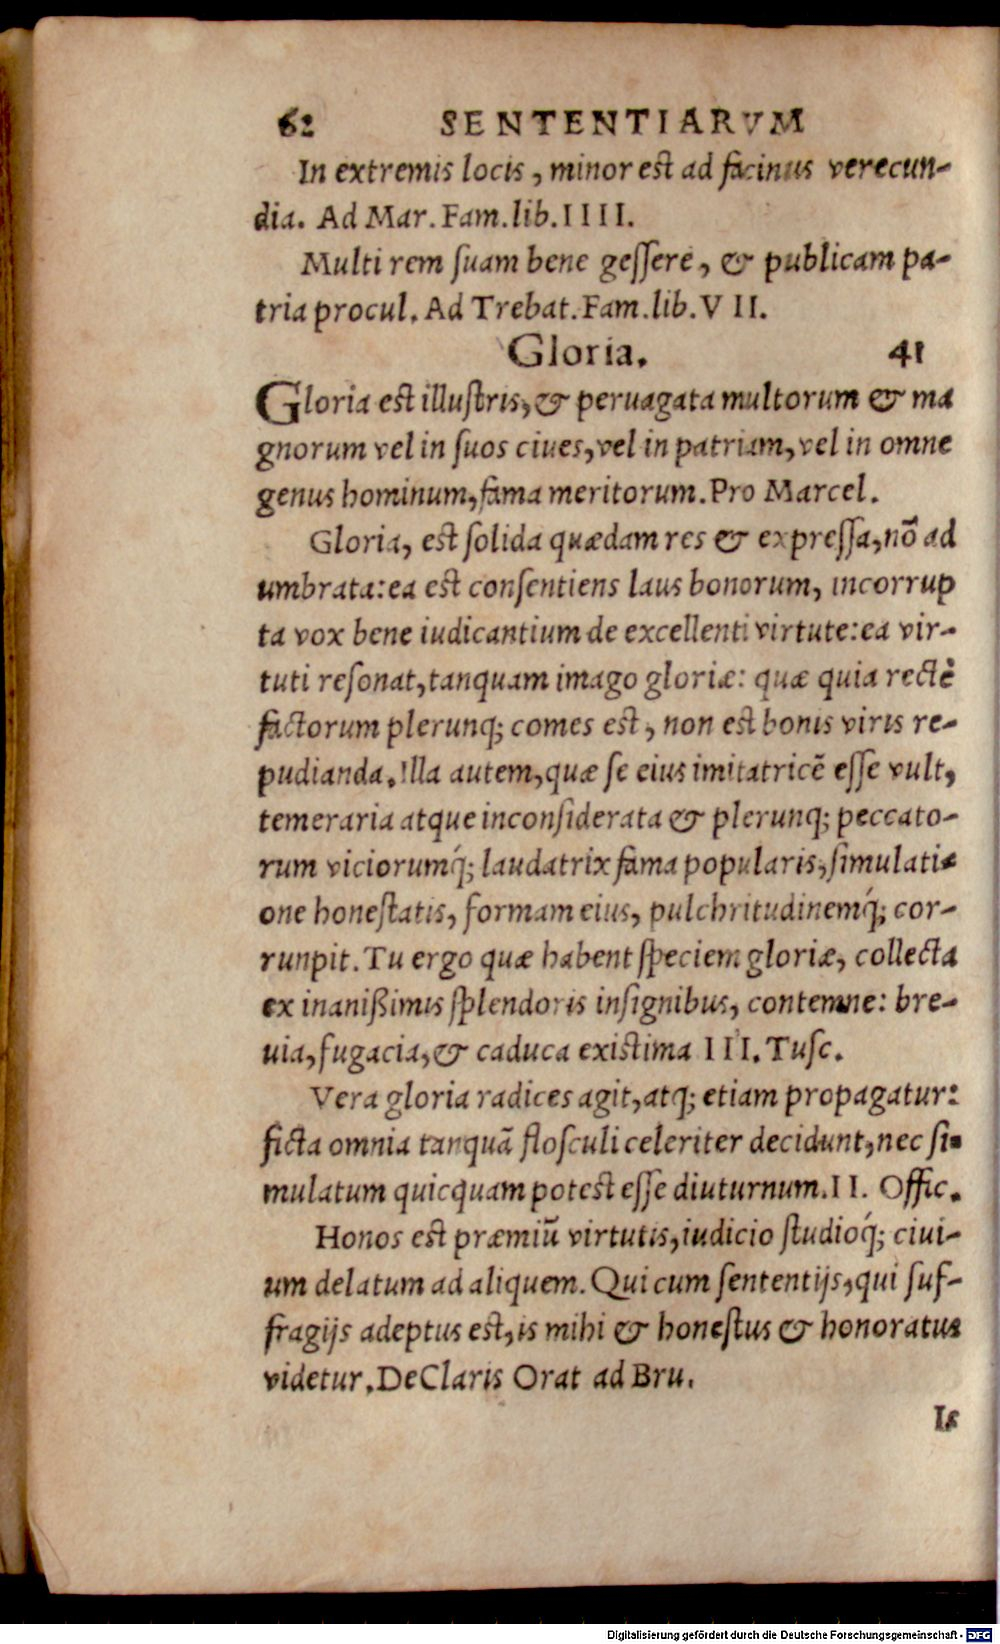 62 SENTENTIARVM
In extremis locis, minor est ad facinus verecun-
dia. Ad Mar. Fam. lib. IIII.
Multi rem ſuam bene geſſere, & publicam pa-
tria procul. Ad Trebat. Fam. lib. VII.
Gloria. 41
Gloria est illuſtris, & peruagata multorum & ma
gnorum vel in ſuos ciues, vel in patriam, vel in omne
genus hominum, fama meritorum. Pro Marcel.
Gloria, est ſolida quædam res & expreſſa, nõ ad
umbrata: ea est conſentiens laus bonorum, incorrup
ta vox bene iudicantium de excellenti virtute: ea vir-
tuti reſonat, tanquam imago gloriæ: quæ quia rectè
factorum plerunq; comes est, non est bonis viris re-
pudianda. Illa autem, quæ ſe eius imitatricẽ eſſe vult,
temeraria atque inconſiderata & plerunq; peccato-
rum viciorumq́; laudatrix fama popularis, ſimulati-
one honeſtatis, formam eius, pulchritudinemq́; cor-
runpit. Tu ergo quæ habent ſpeciem gloriæ, collecta
ex inanißimis ſplendoris inſignibus, contemne: bre-
uia, fugacia, & caduca existima III. Tuſc.
Vera gloria radices agit, atq; etiam propagatur:
ficta omnia tanquã floſculi celeriter decidunt, nec ſi-
mulatum quicquam potest eſſe diuturnum. II. Offic.
Honos est præmiũ virtutis, iudicio ſtudioq́; ciui-
um delatum ad aliquem. Qui cum ſententijs, qui ſuf-
fragijs adeptus est, is mihi & honeſtus & honoratus
videtur. De Claris Orat ad Bru.
Is
Digitalisierung gefördert durch die Deutsche Forschungsgemeinschaft - DFG